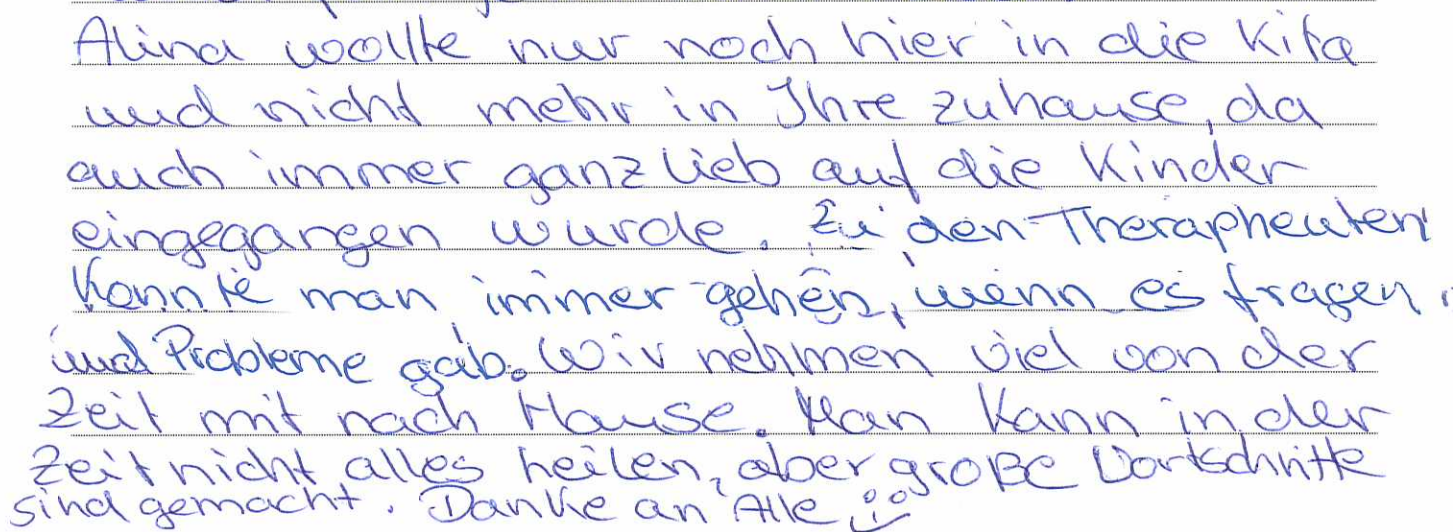 Alina wollte nur noch hier in die Kita
und nicht mehr in Ihre zuhause, da
auch immer ganz lieb auf die Kinder
eingegangen wurde. Zu den Therapheuten
konnte man immer gehen, wenn es fragen
und Probleme gab. Wir nehmen viel von der
Zeit mit nach Hause. Man kann in der
Zeit nicht alles heilen, aber große Vortschritte
sind gemacht. Danke an Alle